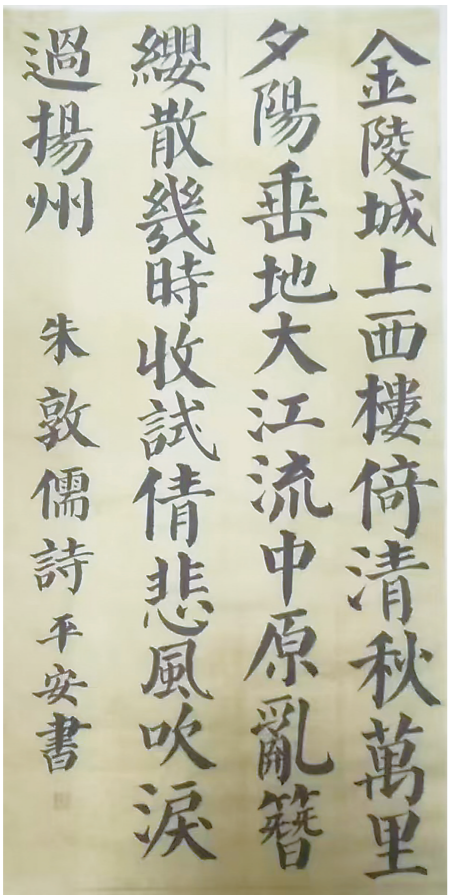 金陵城上西樓倚清秋萬里
夕陽垂地大江流中原亂簪
纓散幾時收試倩悲風吹淚
過揚州
朱敦儒詩平安書